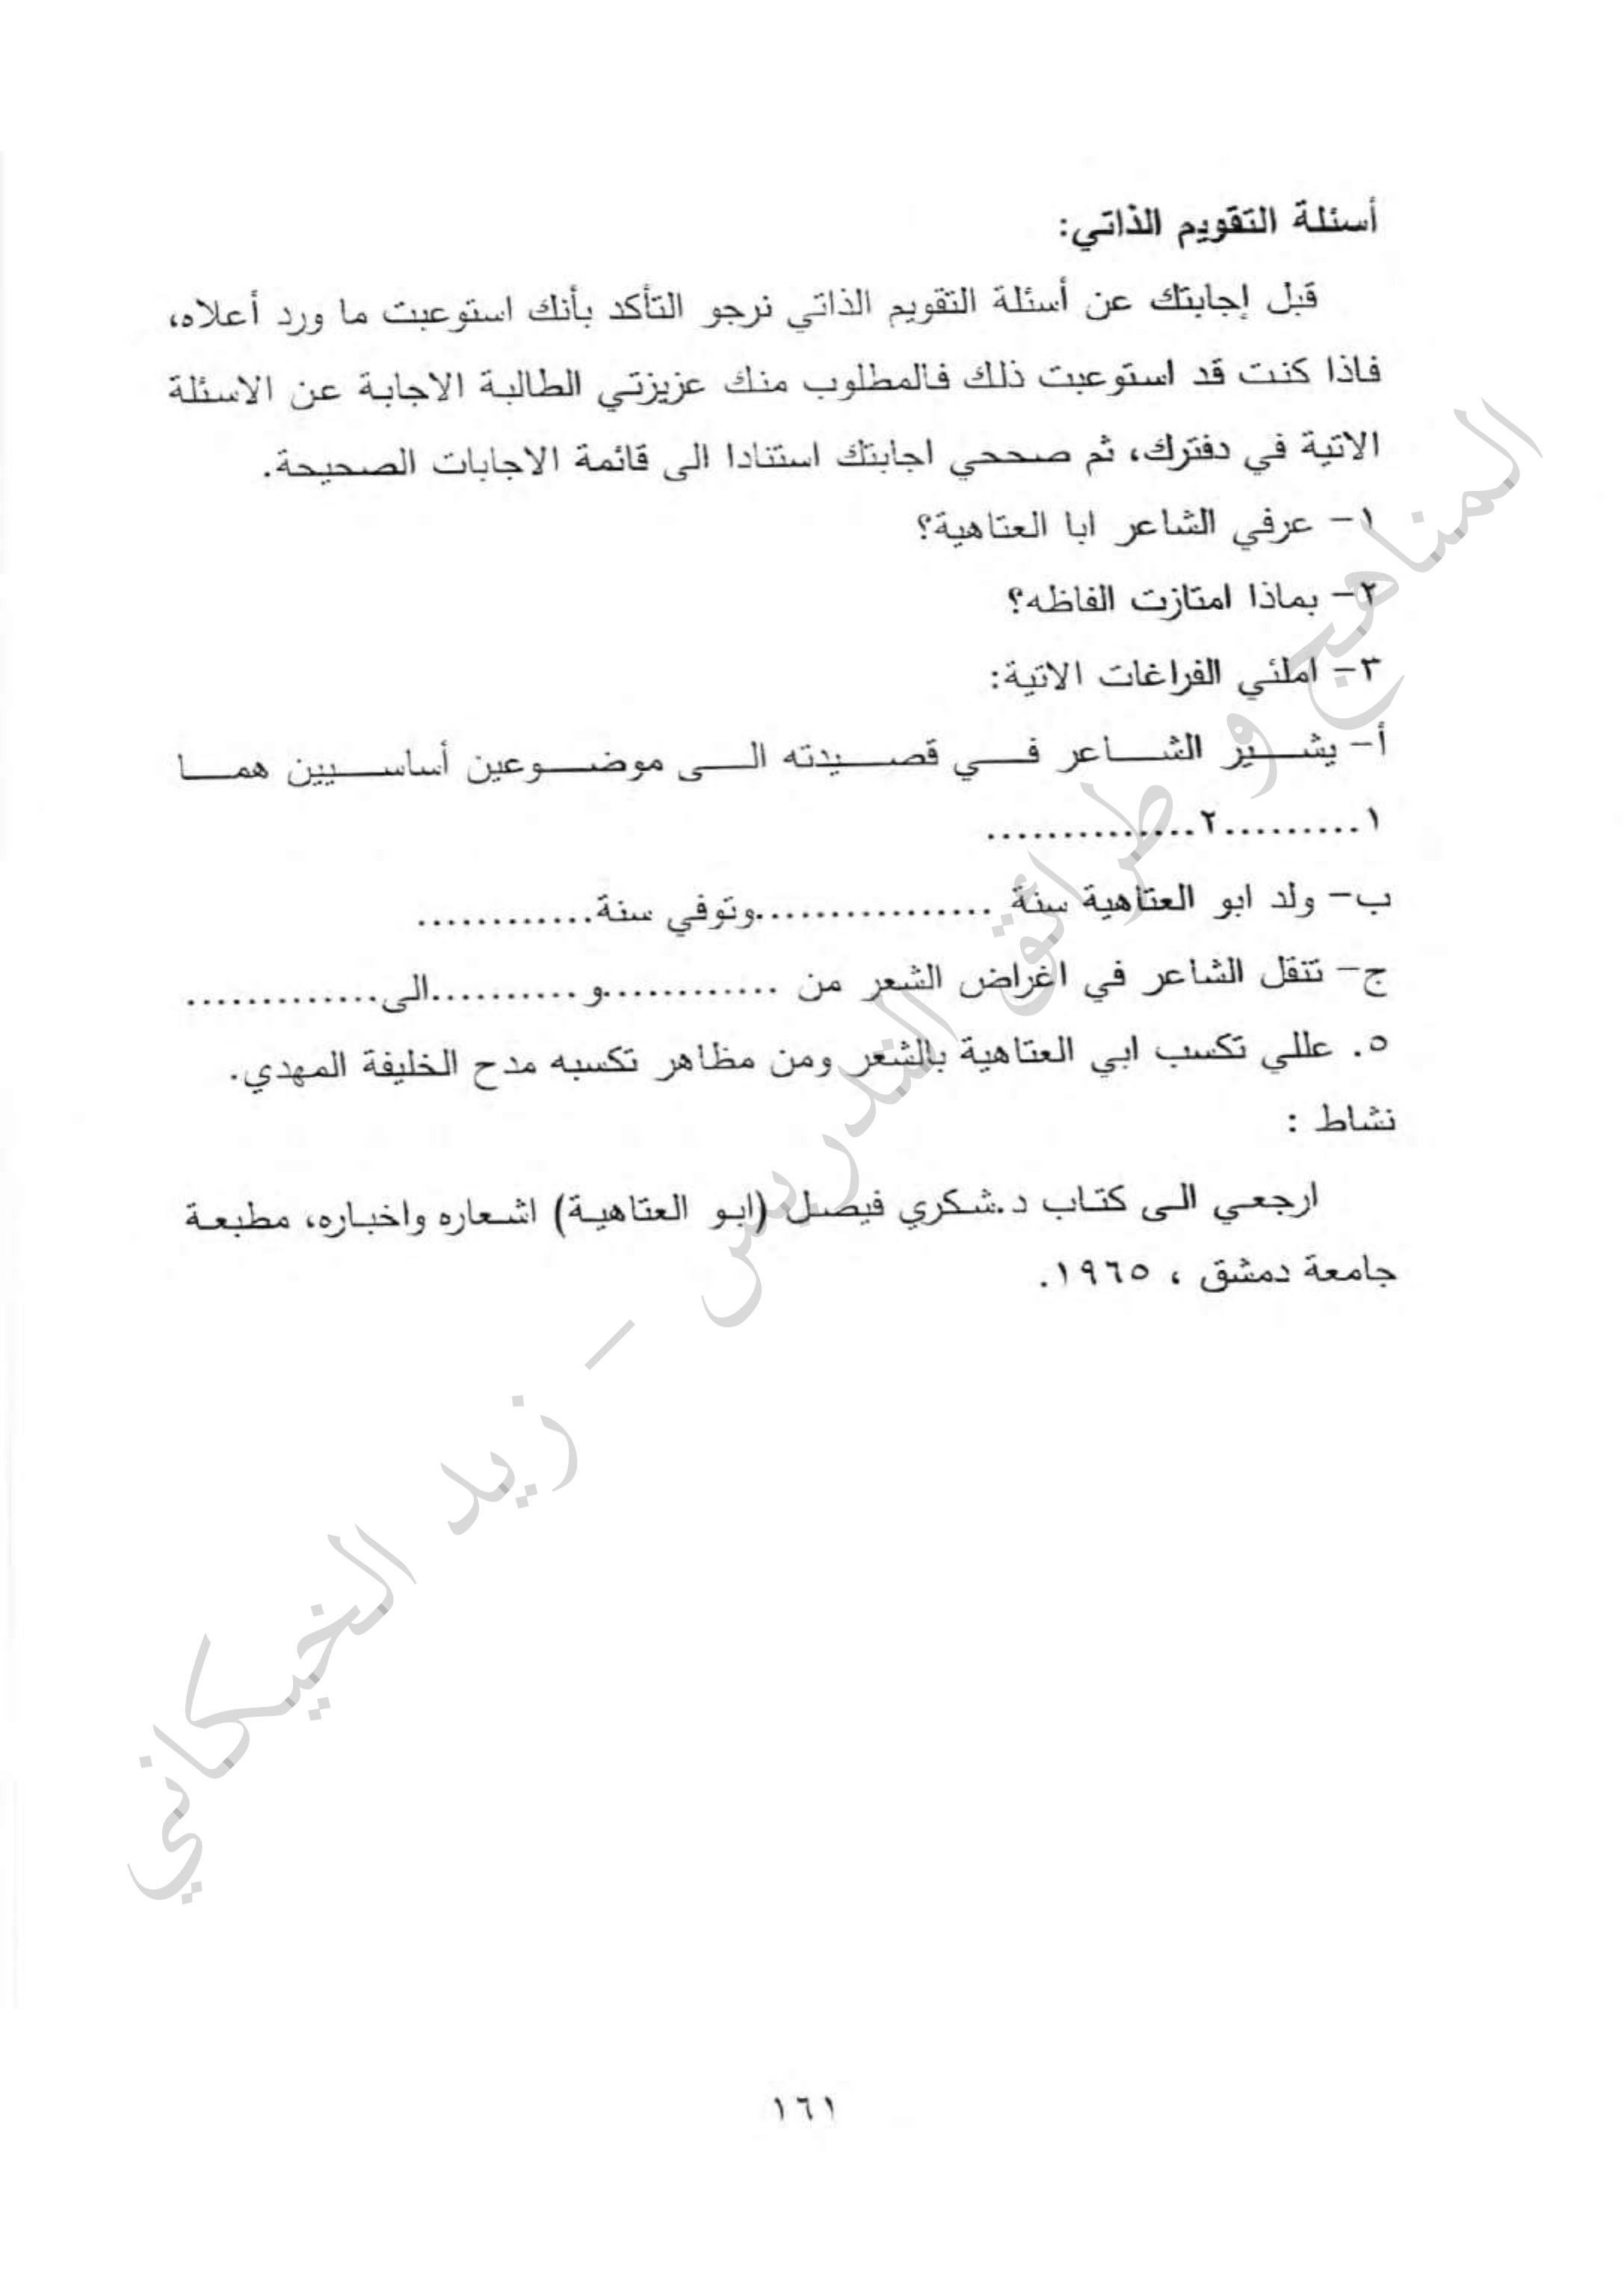 أسئلة التقويم الذاتي:
قبل إجابتك عن أسئلة التقويم الذاتي نرجو التأكد بأنك استوعبت ما ورد أعلاه،
فاذا كنت قد استوعبت ذلك فالمطلوب منك عزيزتي الطالبة الاجابة عن الاسئلة
الاتية في دفترك، ثم صححي اجابتك استنادا الى قائمة الاجابات الصحيحة.
١- عرفي الشاعر ابا العتاهية؟
٢- بماذا امتازت الفاظه؟
٣- املئي الفراغات الاتية:
أ- يشير الشاعر في قصيدته الى موضوعين أساسيين هما
١.........٢..............
ب- ولد ابو العتاهية سنة ................وتوفي سنة............
ج- تنقل الشاعر في اغراض الشعر من ............و..........الى.............
٥. عللي تكسب ابي العتاهية بالشعر ومن مظاهر تكسبه مدح الخليفة المهدي.
نشاط :
ارجعي الى كتاب د.شكري فيصل (ابو العتاهية) اشعاره واخباره، مطبعة
جامعة دمشق ، ١٩٦٥.
المناهج و طرائق التدريس - زيد الخيكاني
١٦١